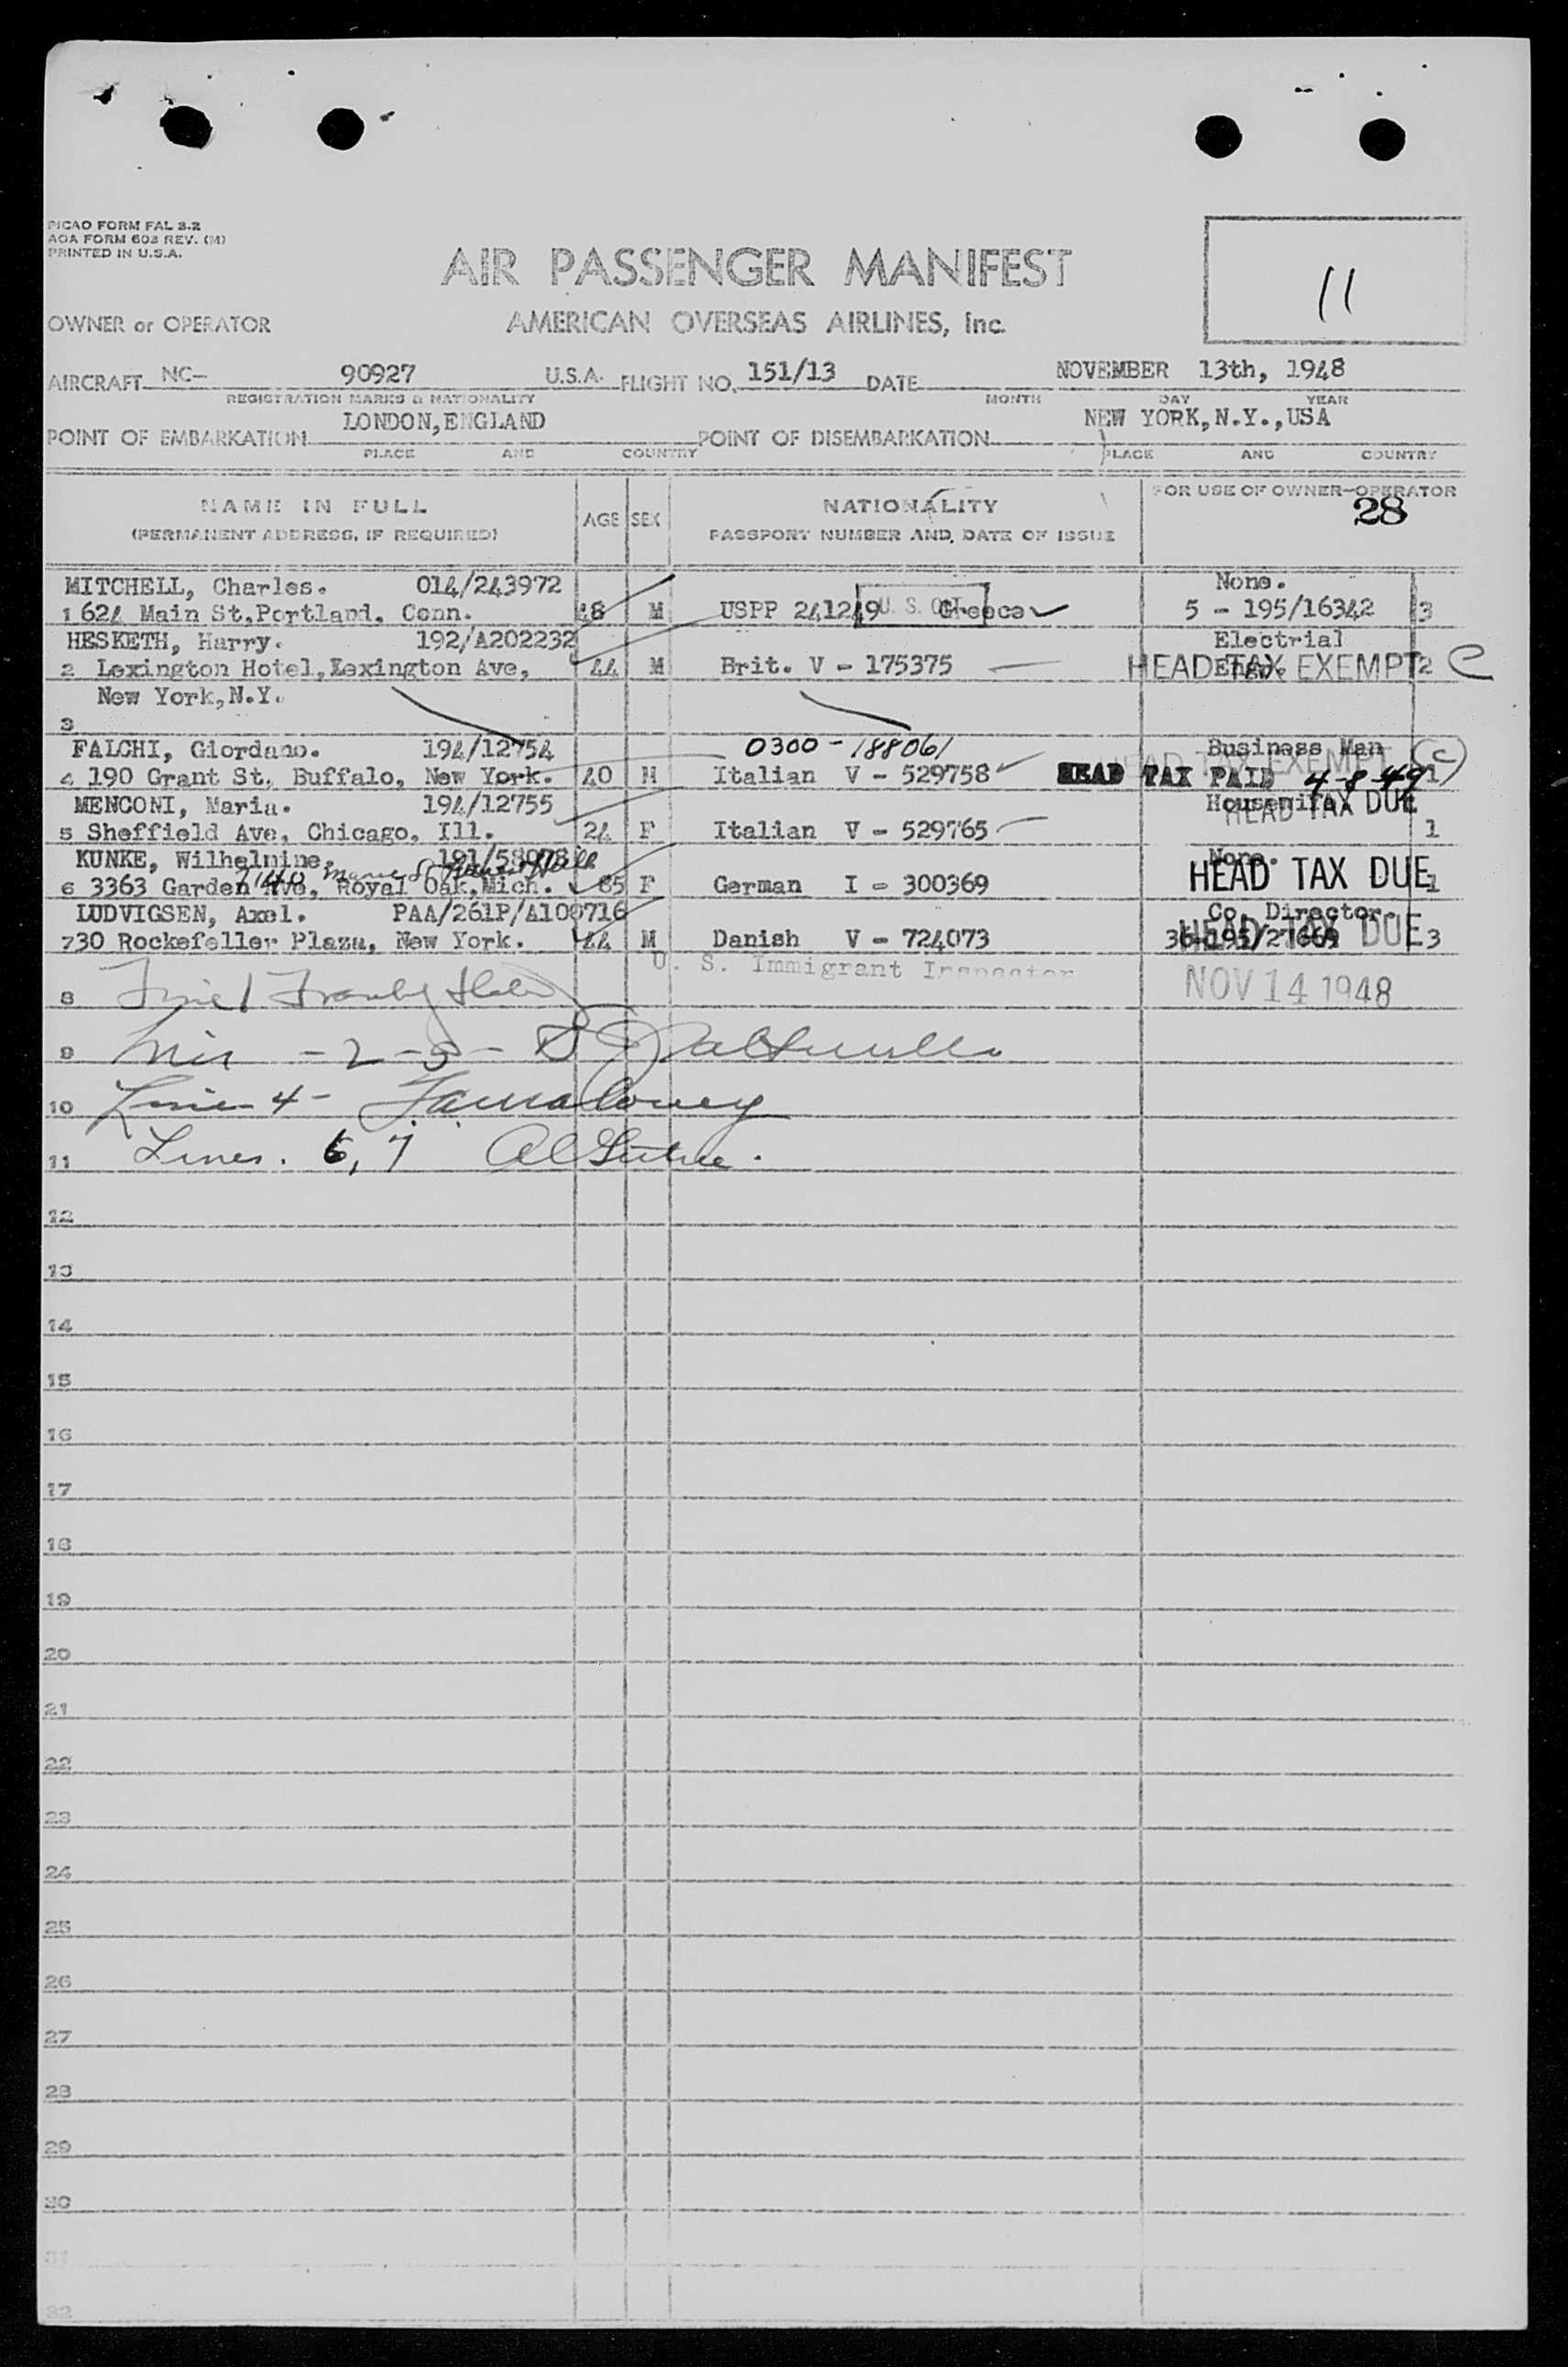 PICAO FORM FAL 3.2
AOA FORM 603 REV. (M)
PRINTED IN U.S.A.
AIR PASSENGER MANIFEST
11
OWNER or OPERATOR AMERICAN OVERSEAS AIRLINES, Inc.
AIRCRAFT NC- 90927 U.S.A. FLIGHT NO. 151/13 DATE NOVEMBER 13th, 1948
REGISTRATION MARKS & NATIONALITY MONTH DAY YEAR
POINT OF EMBARKATION LONDON, ENGLAND POINT OF DISEMBARKATION NEW YORK, N.Y., USA
PLACE AND COUNTRY PLACE AND COUNTRY
NAME IN FULL AGE SEX NATIONALITY FOR USE OF OWNER-OPERATOR
(PERMANENT ADDRESS, IF REQUIRED) PASSPORT NUMBER AND DATE OF ISSUE 28
MITCHELL, Charles. 014/243972 None.
1 624 Main St, Portland, Conn. 48 M USPP 241249 U. S. CIT Greece 5 - 195/16342 3
HESKETH, Harry. 192/A202232 Electrial
2 Lexington Hotel, Lexington Ave, 44 M Brit. V - 175375 Engr. HEAD TAX EXEMPT 2 C
New York, N.Y.
3
FALCHI, Giordano. 194/12754 0300-188061 Business Man HEAD TAX EXEMPT C
4 190 Grant St, Buffalo, New York. 40 M Italian V - 529758 HEAD TAX PAID 4-8-49 1
MENCONI, Maria. 194/12755 Housewife HEAD TAX DUE
5 Sheffield Ave, Chicago, Ill. 24 F Italian V - 529765 1
KUNKE, Wilhelmine. None.
6 3363 Garden Ave, Royal Oak, Mich. 85 F German I - 300369 HEAD TAX DUE 1
LUDVIGSEN, Axel. PAA/261P/A100716 Co. Director.
7 30 Rockefeller Plaza, New York. 44 M Danish V - 724073 HEAD TAX DUE 3
U. S. Immigrant Inspector
8 NOV 14 1948
9 - 2 - 5 -
10 Line 4 -
11 Lines. 6, 7
12
13
14
15
16
17
18
19
20
21
22
23
24
25
26
27
28
29
30
31
32